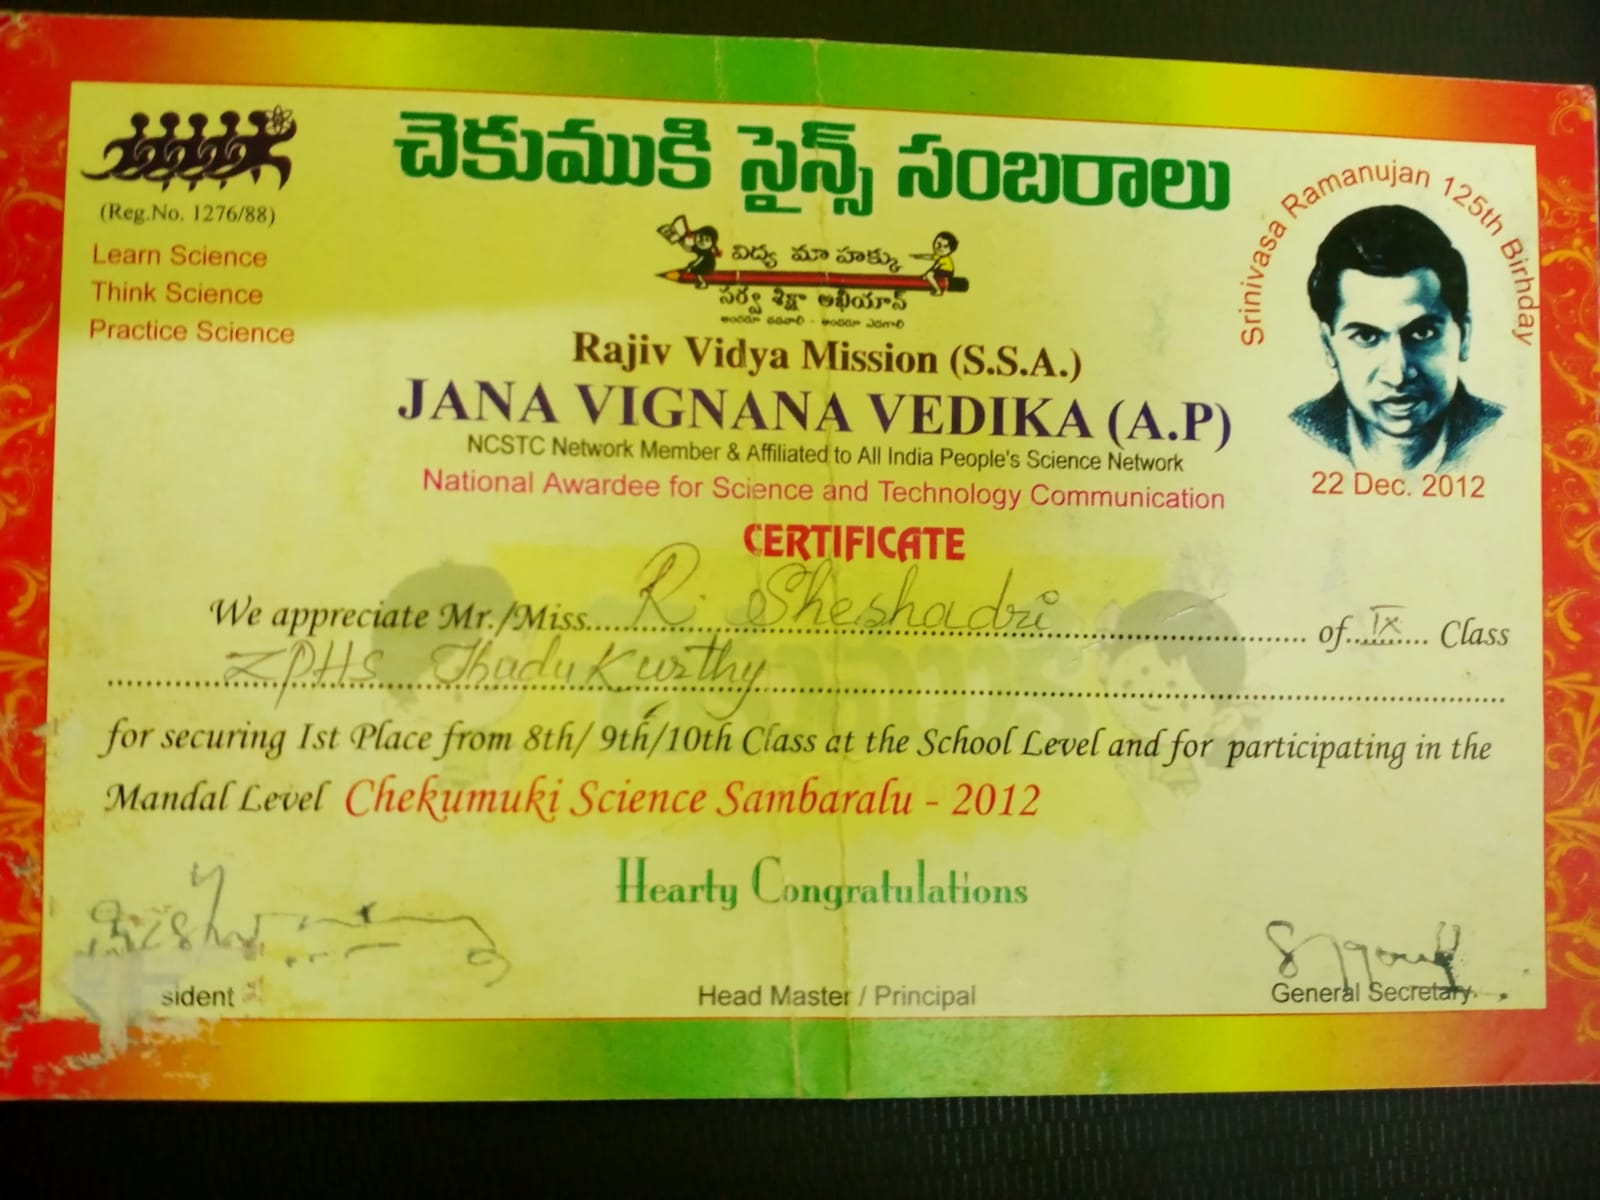 చెకుముకి సైన్స్ సంబరాలు
(Reg.No. 1276/88)
Learn Science
Think Science
Practice Science
విద్య మా హక్కు
సర్వ శిక్షా అభియాన్
అందరూ చదవాలి - అందరూ ఎదగాలి
Srinivasa Ramanujan 125th Birhday
22 Dec. 2012
Rajiv Vidya Mission (S.S.A.)
JANA VIGNANA VEDIKA (A.P)
NCSTC Network Member & Affiliated to All India People's Science Network
National Awardee for Science and Technology Communication
CERTIFICATE
We appreciate Mr./Miss.....R. Sheshadri..... of...IX... Class
ZPHS Thadukurthy
for securing Ist Place from 8th/ 9th/10th Class at the School Level and for participating in the
Mandal Level Chekumuki Science Sambaralu - 2012
Hearty Congratulations
sident
Head Master / Principal
General Secretary